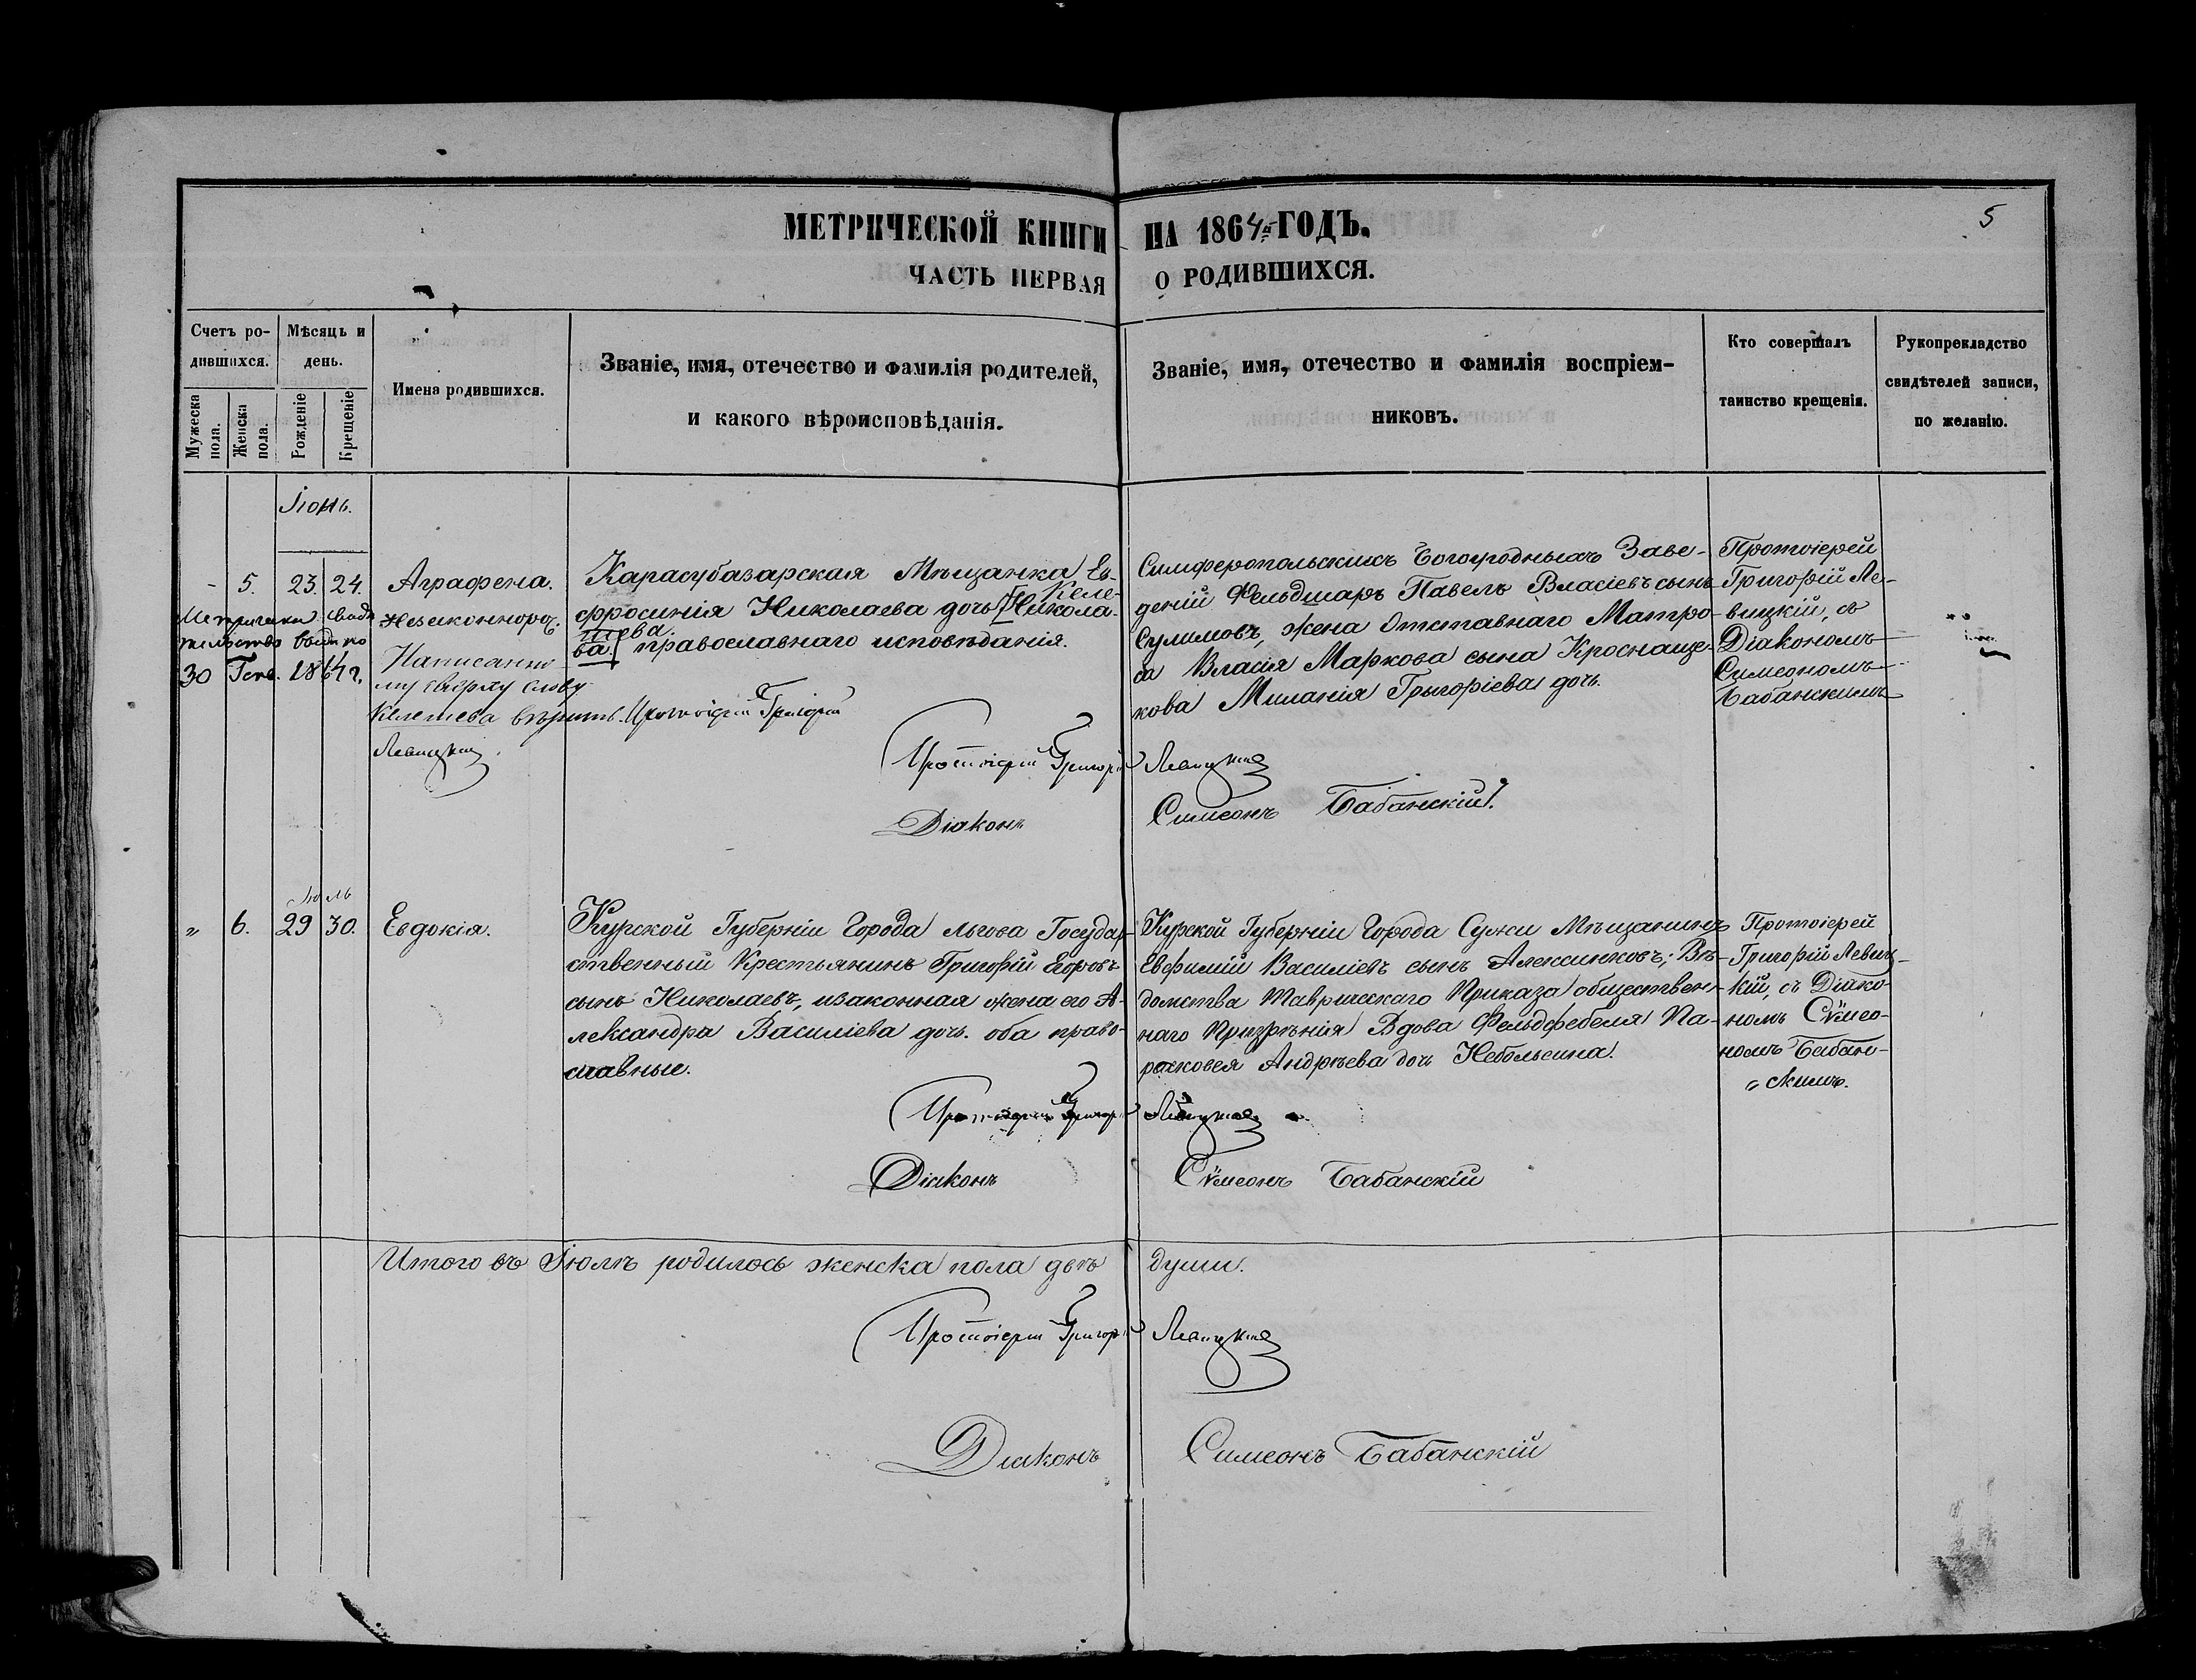 МЕТРИЧЕСКОЙ КНИГИ НА 1864й ГОДЪ.
5
ЧАСТЬ ПЕРВАЯ О РОДИВШИХСЯ.
Счетъ ро-
дившихся.
Мужеска пола.
Женска пола.
Мѣсяцъ и
день.
Рожденіе
Крещеніе
Имена родившихся.
Званіе, имя, отечество и фамилія родителей,
и какого вѣроисповѣданія.
Званіе, имя, отечество и фамилія воспріем-
никовъ.
Кто совершалъ
таинство крещенія.
Рукоприкладство
свидѣтелей записи,
по желанію.
Іюнь.
- 5. 23. 24.
30 Генв. 1864 г.
Аграфена.
Незаконнорож.
Написанно-
му сверху слову
Келешева вѣрить. Протоіерей Григорій
Левицкій.
Карасубазарская Мѣщанка Ев-
Келе-
фросинія Николаева дочь Никола-
шева.
ва православнаго исповѣданія.
Симферопольскихъ Богоугодныхъ Заве-
деній Фельдшаръ Павелъ Власіевъ сынъ
Сулимовъ, жена Отставнаго Матро-
са Власія Маркова сына Кроснаще-
кова Миланія Грыгоріева дочь.
Протоіерей
Григорій Ле-
вицкій, съ
Діакономъ
Симеономъ
Бабанскимъ
Протоіерей Григорій Левицкій
Діаконъ Симеонъ Бабанскій.
Іюль
" 6. 29 30.
Евдокія.
Курской Губерніи Города Льгова Государ-
ственный Крестьянинъ Григорій Егоровъ
сынъ Николаевъ, изаконная жена его А-
лександра Василіева дочь. оба право-
славные.
Курской Губерніи Города Сужи Мѣщанинъ
Евфимій Василіевъ сынъ Алексинковъ; Вѣ-
домства Таврическаго Приказа обществен-
наго Призрѣнія Вдова Фельдфебеля Па-
расковея Андрѣева дочь Небольсина.
Протоіерей
Григорій Левиц-
кій, съ Діако-
номъ Сѵмео-
номъ Бабан-
" скимъ.
Протоіерей Григорій Левицкій
Діаконъ Сѵмеонъ Бабанскій
Итого въ Іюлѣ родилось женска пола двѣ души.
Протоіерей Григорій Левицкій
Діаконъ Симеонъ Бабанскій